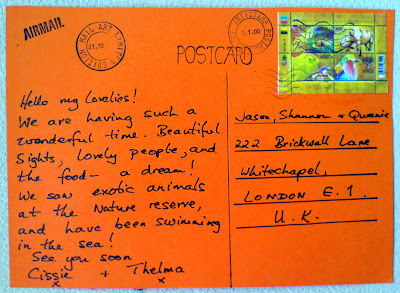 AIRMAIL
MAIL ART LIMITED EDITION
21.12
ARTISTAMP POSTAL
1.1.00
POSTCARD
Hello my Lovelies!
We are having such a
wonderful time. Beautiful
Sights, Lovely people, and
the food- a dream!
We saw exotic animals
at the Nature reserve,
and have been swimming
in the sea!
See you soon
Cissie + Thelma
x x
Jason, Shannon + Queenie
222 Brickwall Lane
Whitechapel,
LONDON E.1.
U.K.